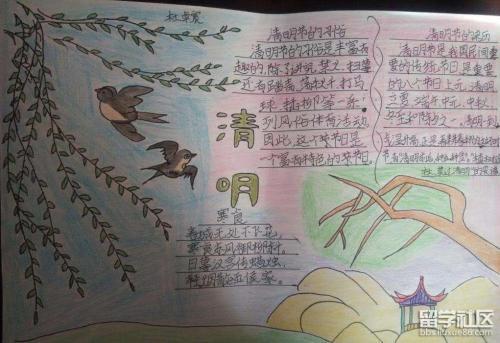 清明节的习俗
清明节的习俗是丰富有
趣的,除了讲究禁火、扫墓
还有踏青、荡秋千、打马
球、插柳等一系
列风俗体育活动
因此,这个节日是
一个富有特色的节日。
清明节的来历
清明节是我国民间重
要的传统节日,是重要
的八个节日上元、清明、
立夏、端午、中元、中秋、
冬至和除夕之一。
清
明
寒食
春城无处不飞花,
寒食东风御柳斜。
日暮汉宫传蜡烛,
轻烟散入五侯家。
留学社区
bbs.liuxue86.com